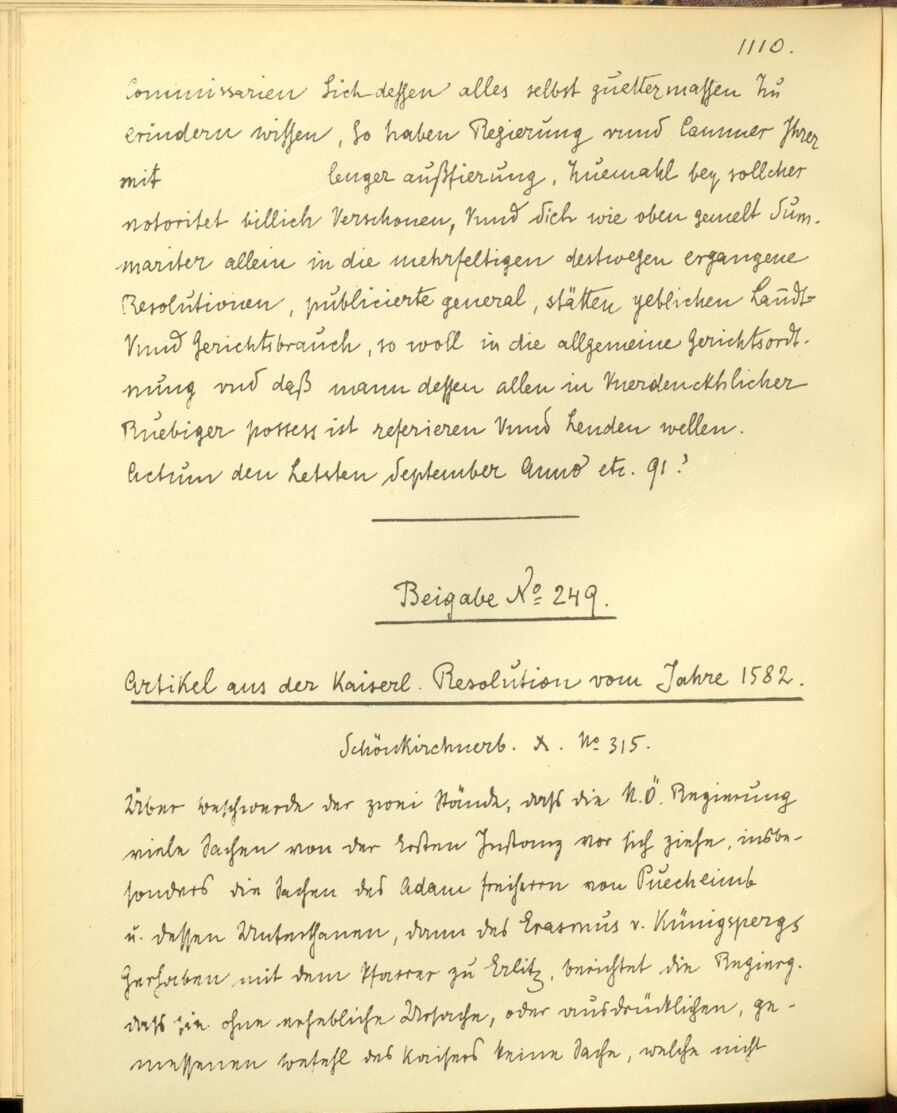 1110.
Commissarien Sich dessen alles selbst guettermassen Zu
erindern wissen, So haben Regierung vnnd Cammer Ihrer
mit lenger außfierung, Zuemahl bey sollcher
notoritet billich Verschonen, Vnnd Sich wie oben gemelt Sum-
mariter allein in die mehrfeltigen destwegen ergangene
Resolutionen, publicierte general, stätten yeblichen Landt-
Vnnd Gerichtsbrauch, so woll in die allgemeine Gerichtsordt-
nung vnd daß mann dessen allen in Vnerdenckhlicher
Ruebiger possess ist referieren Vnnd Lenden wellen.
Actum den Letsten September Anno etc. 91.
Beigabe No 249.
Artikel aus der Kaiserl. Resolution vom Jahre 1582.
Schönkirchnerb. X. No 315.
Über beschwerde der zwei Stände, daß die N.Ö. Regierung
viele Sachen von der Ersten Instanz vor sich ziehe, insbe-
sonders die Sachen des Adam freiherrn von Puecheimb
u. dessen Unterthanen, dann des Erasmus v. Künigspergs
Gerhaben mit dem Pfarrer zu Erlitz, berichtet die Regierg.
daß sie ohne erhebliche Ursache, oder ausdrücklichen, ge-
messenen befehl des Kaisers keine Sache, welche nicht